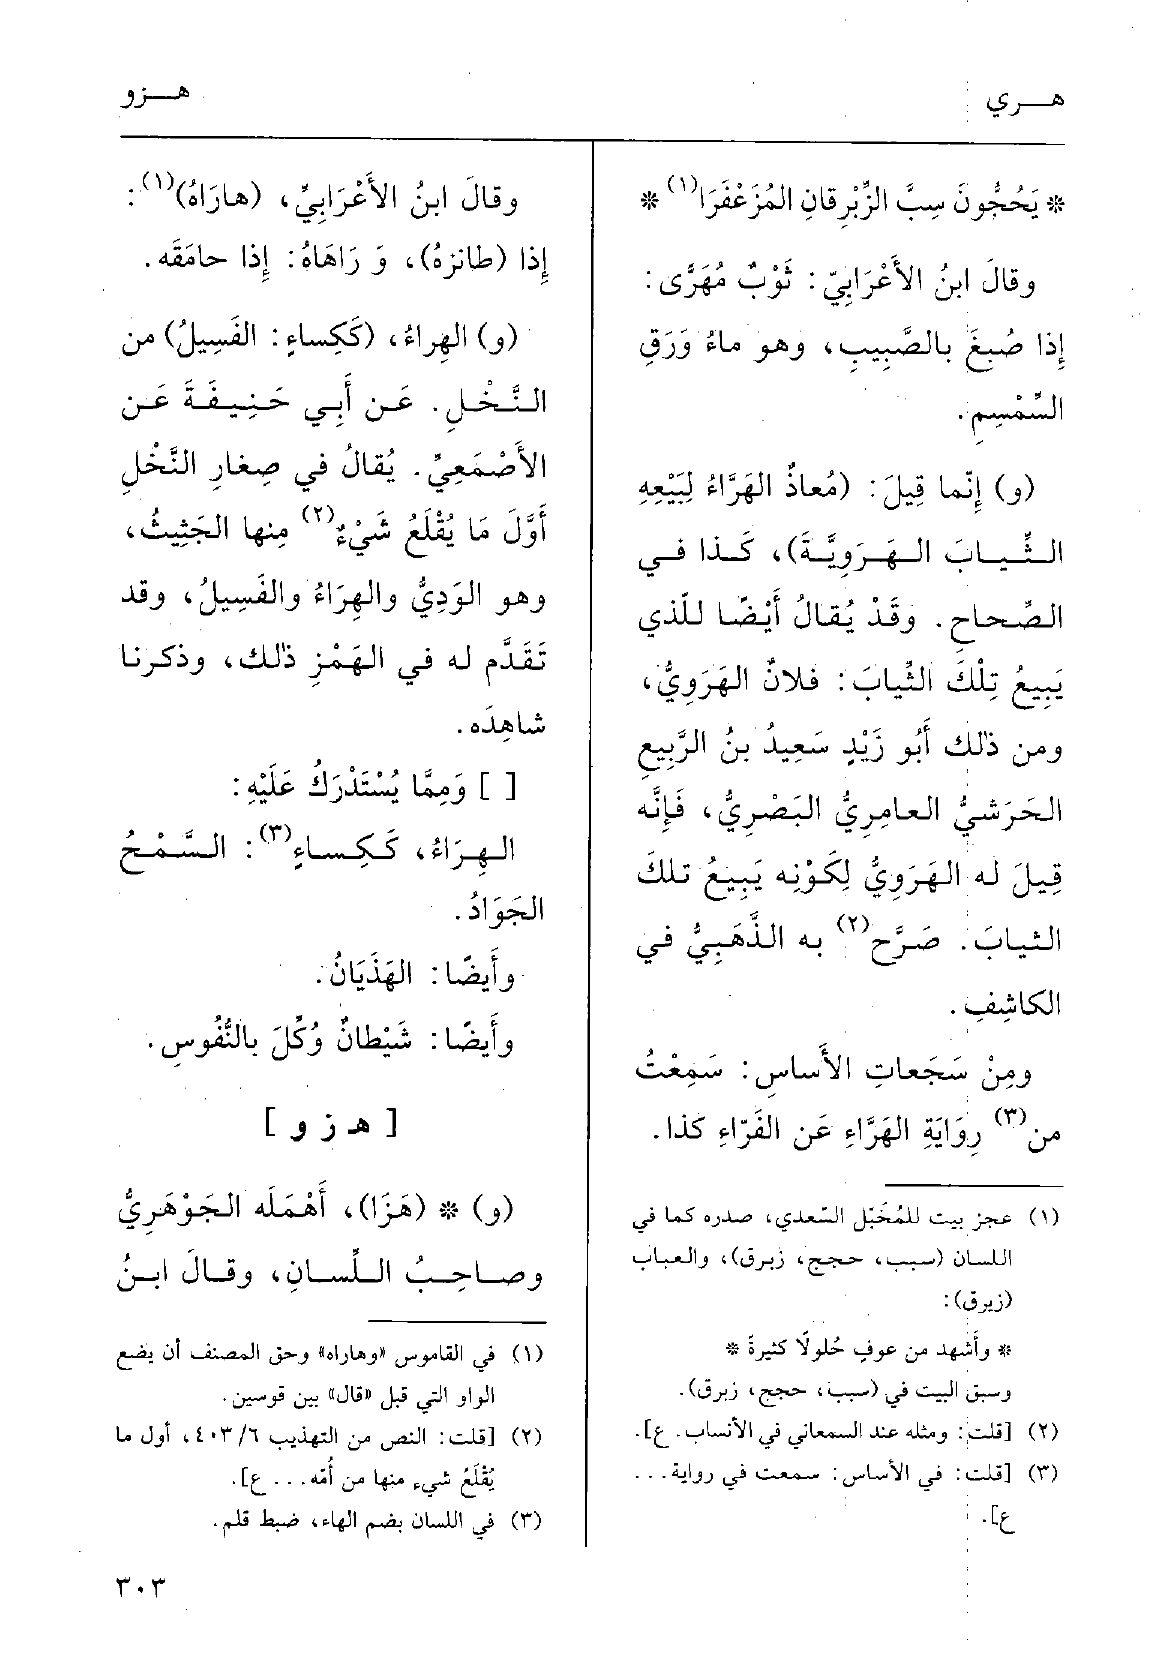 هـري
هـزو
* يَحُجُّونَ سِبَّ الزِّبْرِقانِ المُزَعْفَرَا(١) *
وقالَ ابنُ الأَعْرَابِيّ: ثَوْبٌ مُهَرًّى:
إذا صُبِغَ بالصَّبِيبِ، وهو ماءُ وَرَقِ
السِّمْسِمِ.
(و) إنّما قِيلَ: (مُعاذٌ الهَرَّاءُ لِبَيْعِهِ
الثِّيابَ الهَرَوِيَّةَ)، كَذا في
الصِّحاحِ. وقَدْ يُقالُ أَيْضًا للّذي
يَبِيعُ تِلْكَ الثِّيابَ: فلانٌ الهَرَوِيُّ،
ومن ذٰلك أَبُو زَيْدٍ سَعِيدُ بنُ الرَّبِيعِ
الحَرَشيُّ العامِرِيُّ البَصْرِيُّ، فَإِنَّه
قِيلَ له الهَرَوِيُّ لِكَوْنِه يَبِيعُ تلكَ
الثيابَ. صَرَّح(٢) به الذَّهَبِيُّ في
الكاشِفِ.
ومِنْ سَجَعاتِ الأَساسِ: سَمِعْتُ
من(٣) رِوَايَةِ الهَرَّاءِ عَنِ الفَرّاءِ كذا.
(١) عجز بيت للمُخَبّل السّعدي، صدره كما في
اللسان (سبب، حجج، زبرق)، والعباب
(زبرق):
* وأَشهد من عوفٍ حُلولًا كثيرةً *
وسبق البيت في (سبب، حجج، زبرق).
(٢) [قلت: ومثله عند السمعاني في الأنساب. ع].
(٣) [قلت: في الأساس: سمعت في رواية...
ع].
وقالَ ابنُ الأَعْرَابِيِّ، (هارَاهُ)(١):
إذا (طانزهُ)، وَ رَاهَاهُ: إِذا حامَقَه.
(و) الهِراءُ، (كَكِساءٍ: الفَسِيلُ) من
النَّخْلِ. عَن أَبِي حَنِيفَةَ عَن
الأَصْمَعِيِّ. يُقالُ في صِغارِ النَّخْلِ
أَوَّلَ مَا يُقْلَعُ شَيْءٌ(٢) مِنها الجَثِيثُ،
وهو الوَدِيُّ والهِرَاءُ والفَسِيلُ، وقد
تَقَدَّم له في الهَمْزِ ذٰلك، وذكرنا
شاهِدَه.
[ ] وَمِمَّا يُسْتَدْرَكُ عَلَيْهِ:
الهِرَاءُ، كَكِساءٍ(٣): السَّمْحُ
الجَوَادُ.
وأَيضًا: الهَذَيَانُ.
وأَيضًا: شَيْطانٌ وُكِّلَ بالنُّفُوسِ.
[ هـ ز و ]
(و) * (هَزَا)، أَهْمَلَه الجَوْهَرِيُّ
وصاحِبُ اللِّسانِ، وقالَ ابنُ
(١) في القاموس «وهاراه» وحق المصنف أن يضع
الواو التي قبل «قال» بين قوسين.
(٢) [قلت: النص من التهذيب ٤٠٣/٦، أول ما
يُقْلَعُ شيء منها من أُمّه... ع].
(٣) في اللسان بضم الهاء، ضبط قلم.
٣٠٣